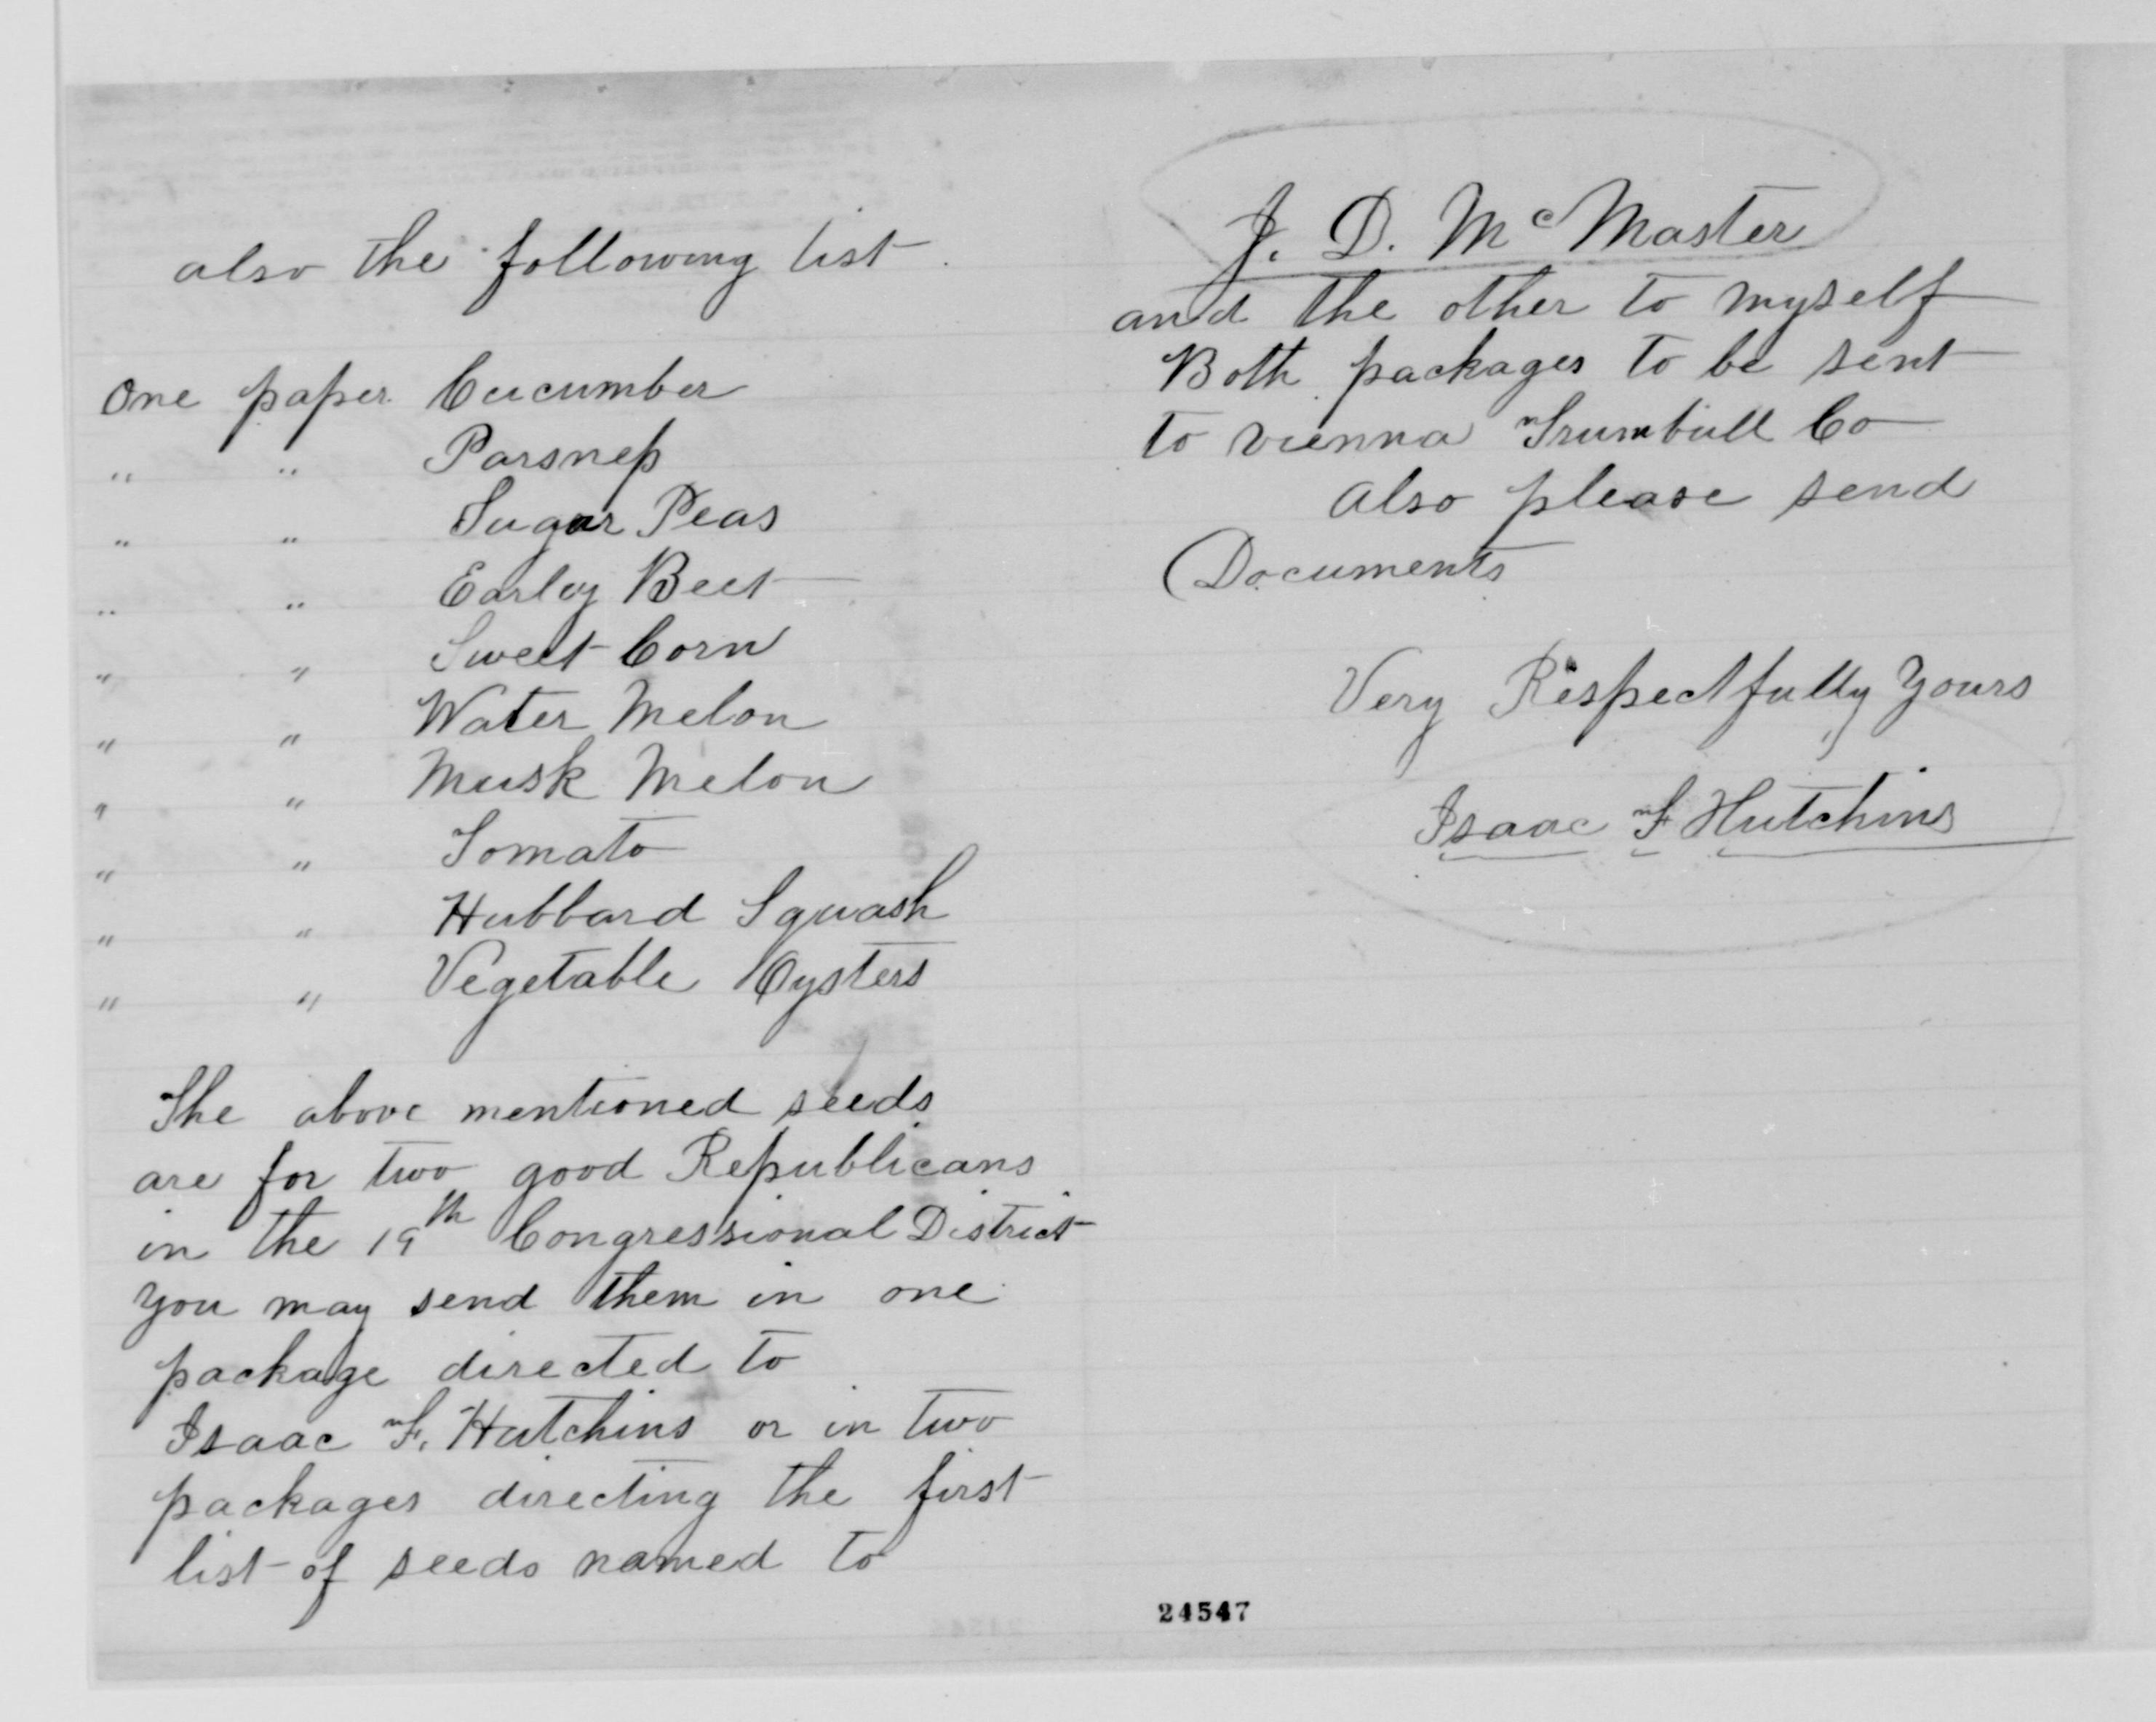 also the following list.
One paper Cucumber
" " Parsnep
" " Sugar Peas
" " Earley Beet
" " Sweet Corn
" " Water Melon
" " Musk Melon
" " Tomato
" " Hubbard Squash
" " Vegetable Oysters
The above mentioned seeds
are for two good Republicans
in the 19th Congressional District
you may send them in one
package directed to
Isaac F. Hutchins or in two
packages directing the first
list of seeds named to
J. D. McMaster
and the other to myself
Both packages to be sent
to Vienna Trumbull Co
Also please send
Documents
Very Respectfully Yours
Isaac F Hutchins
24547